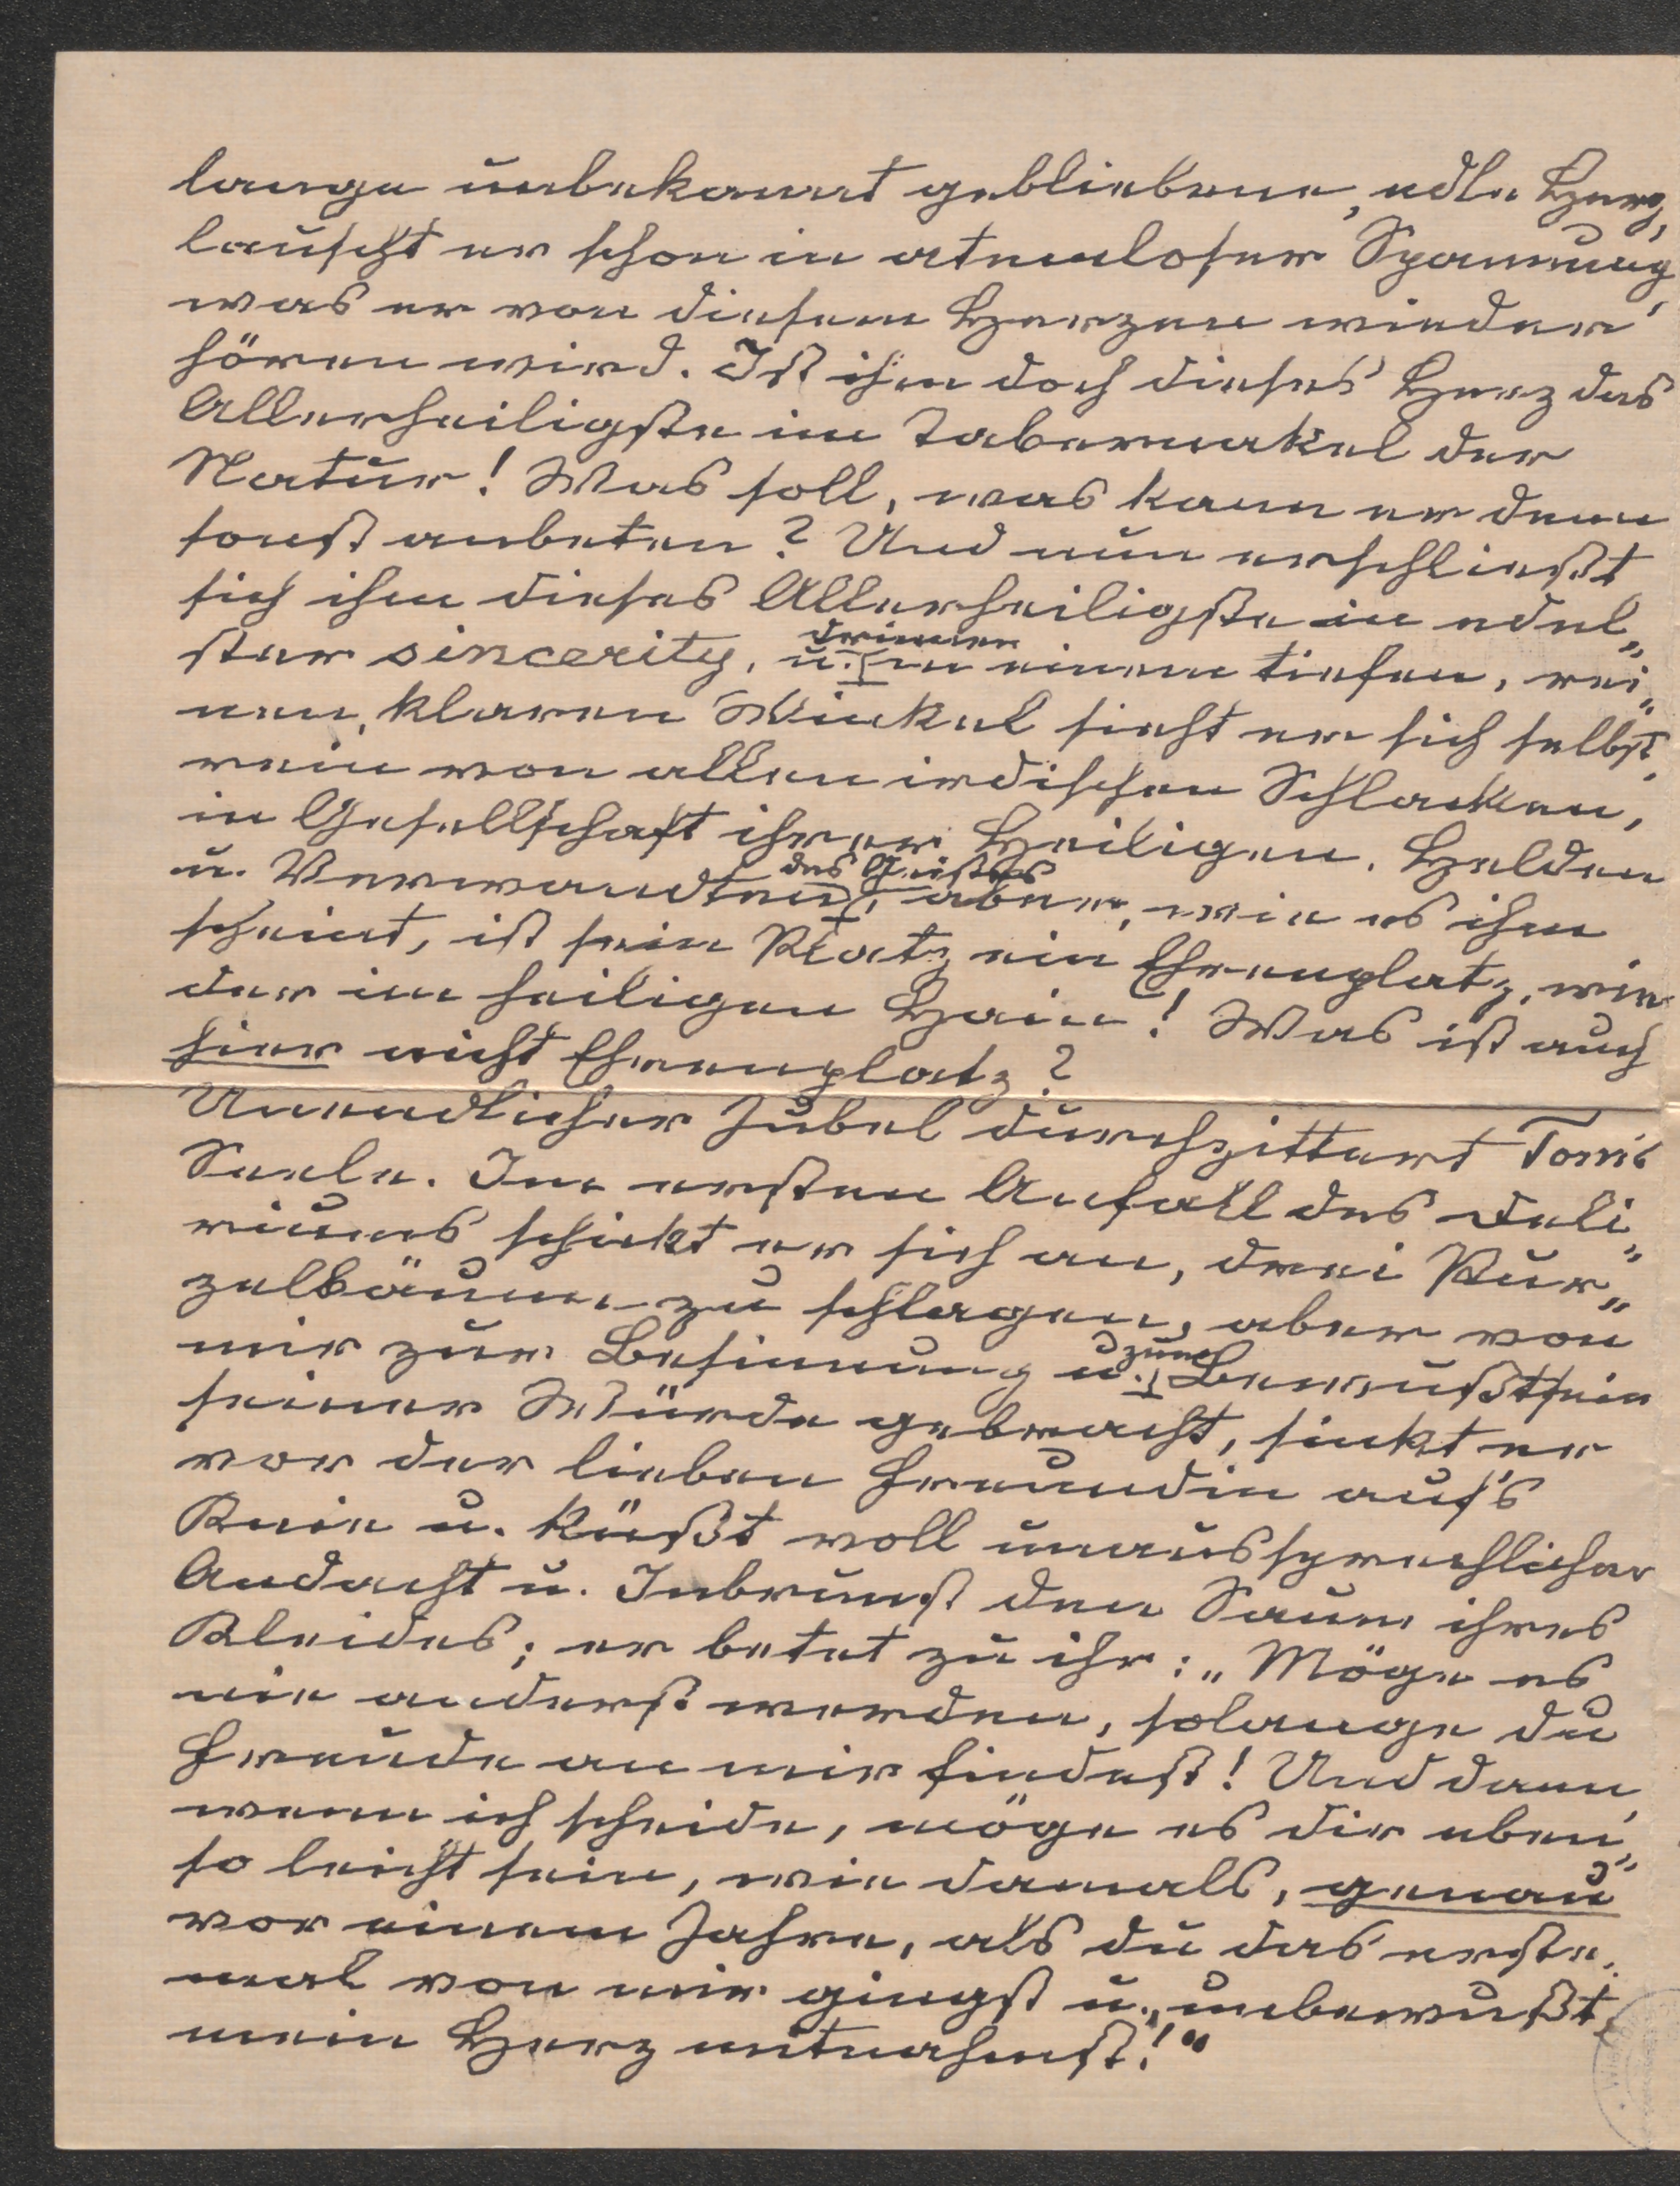 lange unbekannt gebliebene, edle Herz,
lauscht er schon in atemloser Spannung,
was er von diesem Herzen wieder
hören wird. Ist ihm doch dieses Herz das
Allerheiligste im Tabernakel der
Natur! Was soll, was kann er denn
sonst anbeten? Und nun erschließt
sich ihm dieses Allerheiligste in edel„
ster sincerity, u. drinnen in einem tiefen, rei„
nen, klaren Winkel sieht er sich selbst,
rein von allen irdischen Schlacken,
in Gesellschaft ihrer Heiligen, Helden
u. Verwandten des Geistes, aber, wie es ihm
scheint, ist sein Platz ein Ehrenplatz, wie
der im heiligen Hain! Was ist auch
hier nicht Ehrenplatz?
Unendlicher Jubel durchzittert Tom's
Seele. Im ersten Anfall des Deli„
riums schickt er sich an, drei Pur„
zelbäume zu schlagen, aber von
mir zur Besinnung u. zum Bewußtsein
seiner Würde gebracht, sinkt er
vor der lieben Freundin auf's
Knie u. küßt voll unaussprechlicher
Andacht u. Inbrunst den Saum ihres
Kleides; er betet zu ihr: „Möge es
nie anderst werden, solange du
Freude an mir findest! Und dann,
wenn ich scheide, möge es dir eben„
so leicht sein, wie damals, genau
vor einem Jahre, als du das erste„
mal von mir gingst u., unbewußt,
mein Herz mitnahmst!"